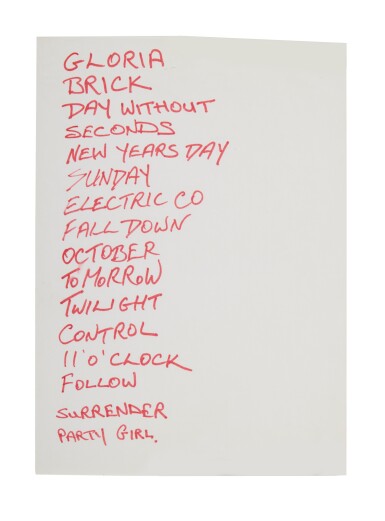 GLORIA
BRICK
DAY WITHOUT
SECONDS
NEW YEARS DAY
SUNDAY
ELECTRIC CO
FALL DOWN
OCTOBER
TOMORROW
TWILIGHT
CONTROL
11'O'CLOCK
FOLLOW
SURRENDER
PARTY GIRL.